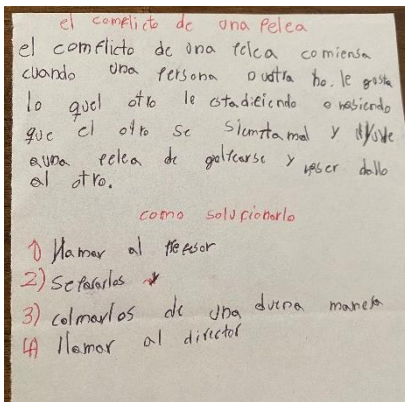 el comflicto de una Pelea
el comflicto de una Pelea comiensa
cuando una Persona o uotra no. le gusta
lo quel otro le estadiciendo o hasiendo
que el otro se siemta mal y
auna pelea de golpearse y haser daño
al otro.
como solucionarlo
1) llamar al Profesor
2) SePararlos
3) colmarlos de una buena manera
4) llamar al director